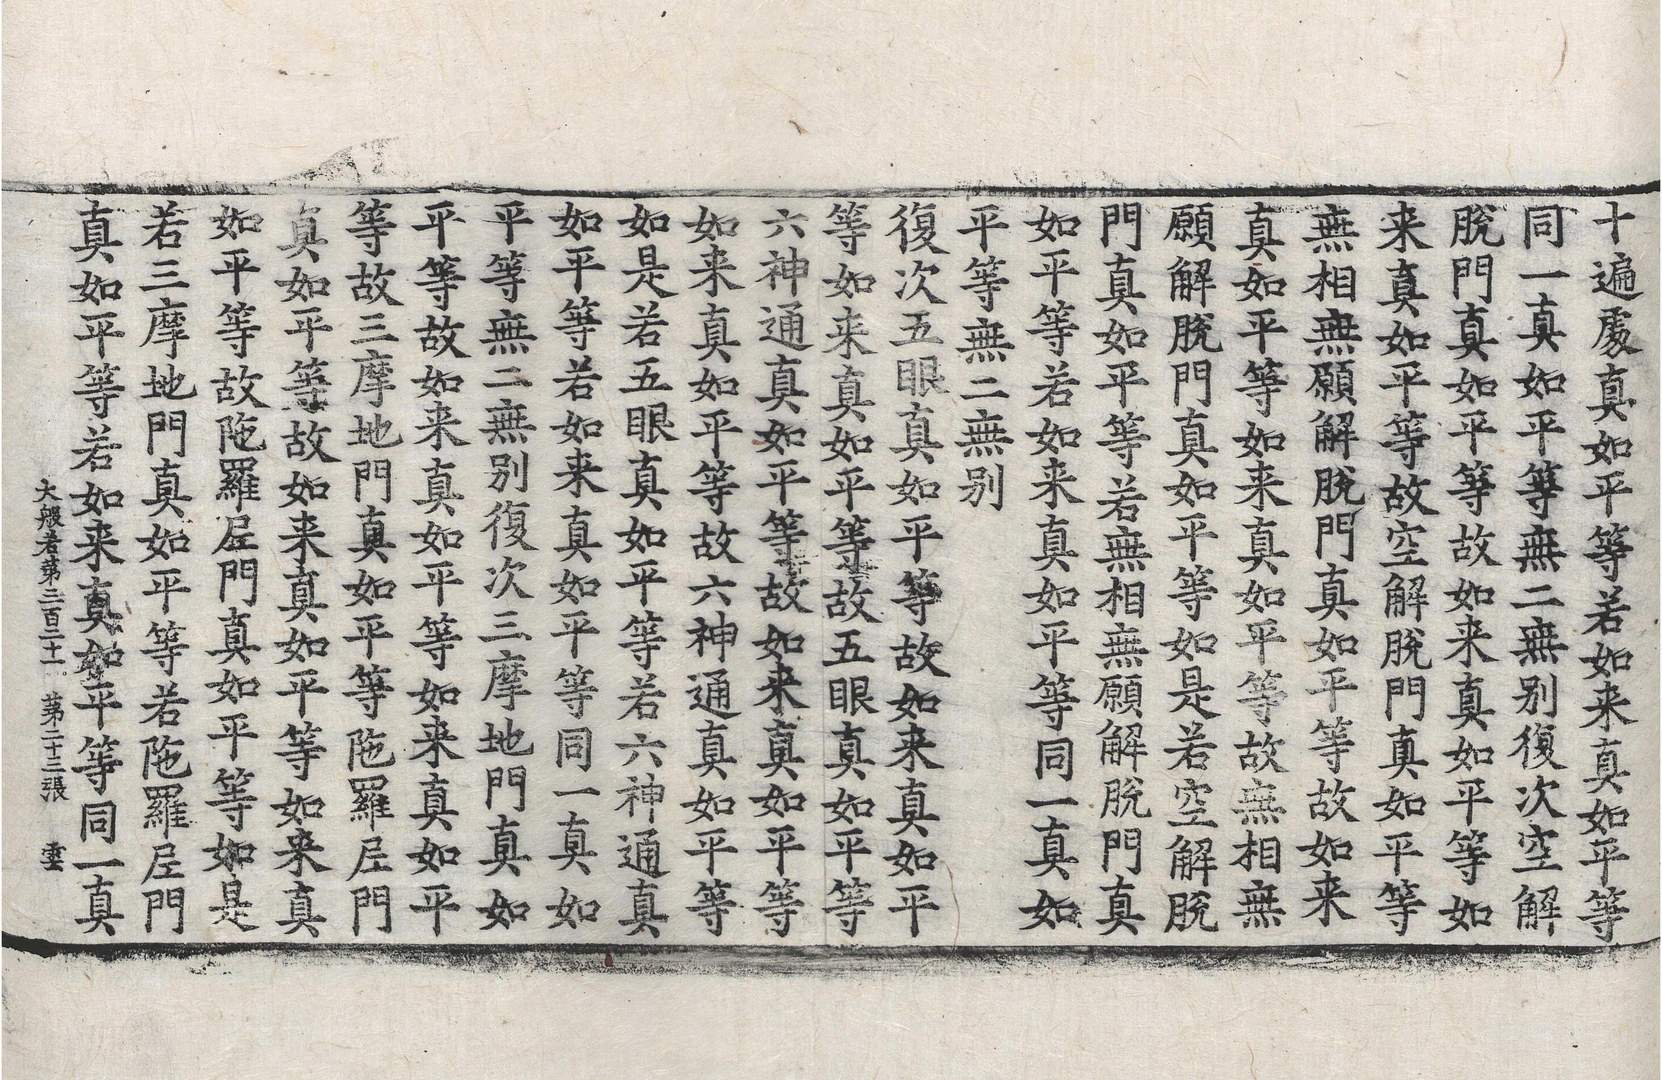 十遍處真如平等若如来真如平等
同一真如平等無二無别復次空解
脫門真如平等故如来真如平等如
来真如平等故空解脫門真如平等
無相無願解脫門真如平等故如来
真如平等如来真如平等故無相無
願解脫門真如平等如是若空解脫
門真如平等若無相無願解脫門真
如平等若如来真如平等同一真如
平等無二無别
復次五眼真如平等故如来真如平
等如来真如平等故五眼真如平等
六神通真如平等故如来真如平等
如来真如平等故六神通真如平等
如是若五眼真如平等若六神通真
如平等若如来真如平等同一真如
平等無二無别復次三摩地門真如
平等故如来真如平等如来真如平
等故三摩地門真如平等陁羅尼門
真如平等故如来真如平等如来真
如平等故陁羅尼門真如平等如是
若三摩地門真如平等若陁羅尼門
真如平等若如来真如平等同一真
大般若第三百二十一 第二十三張 雲